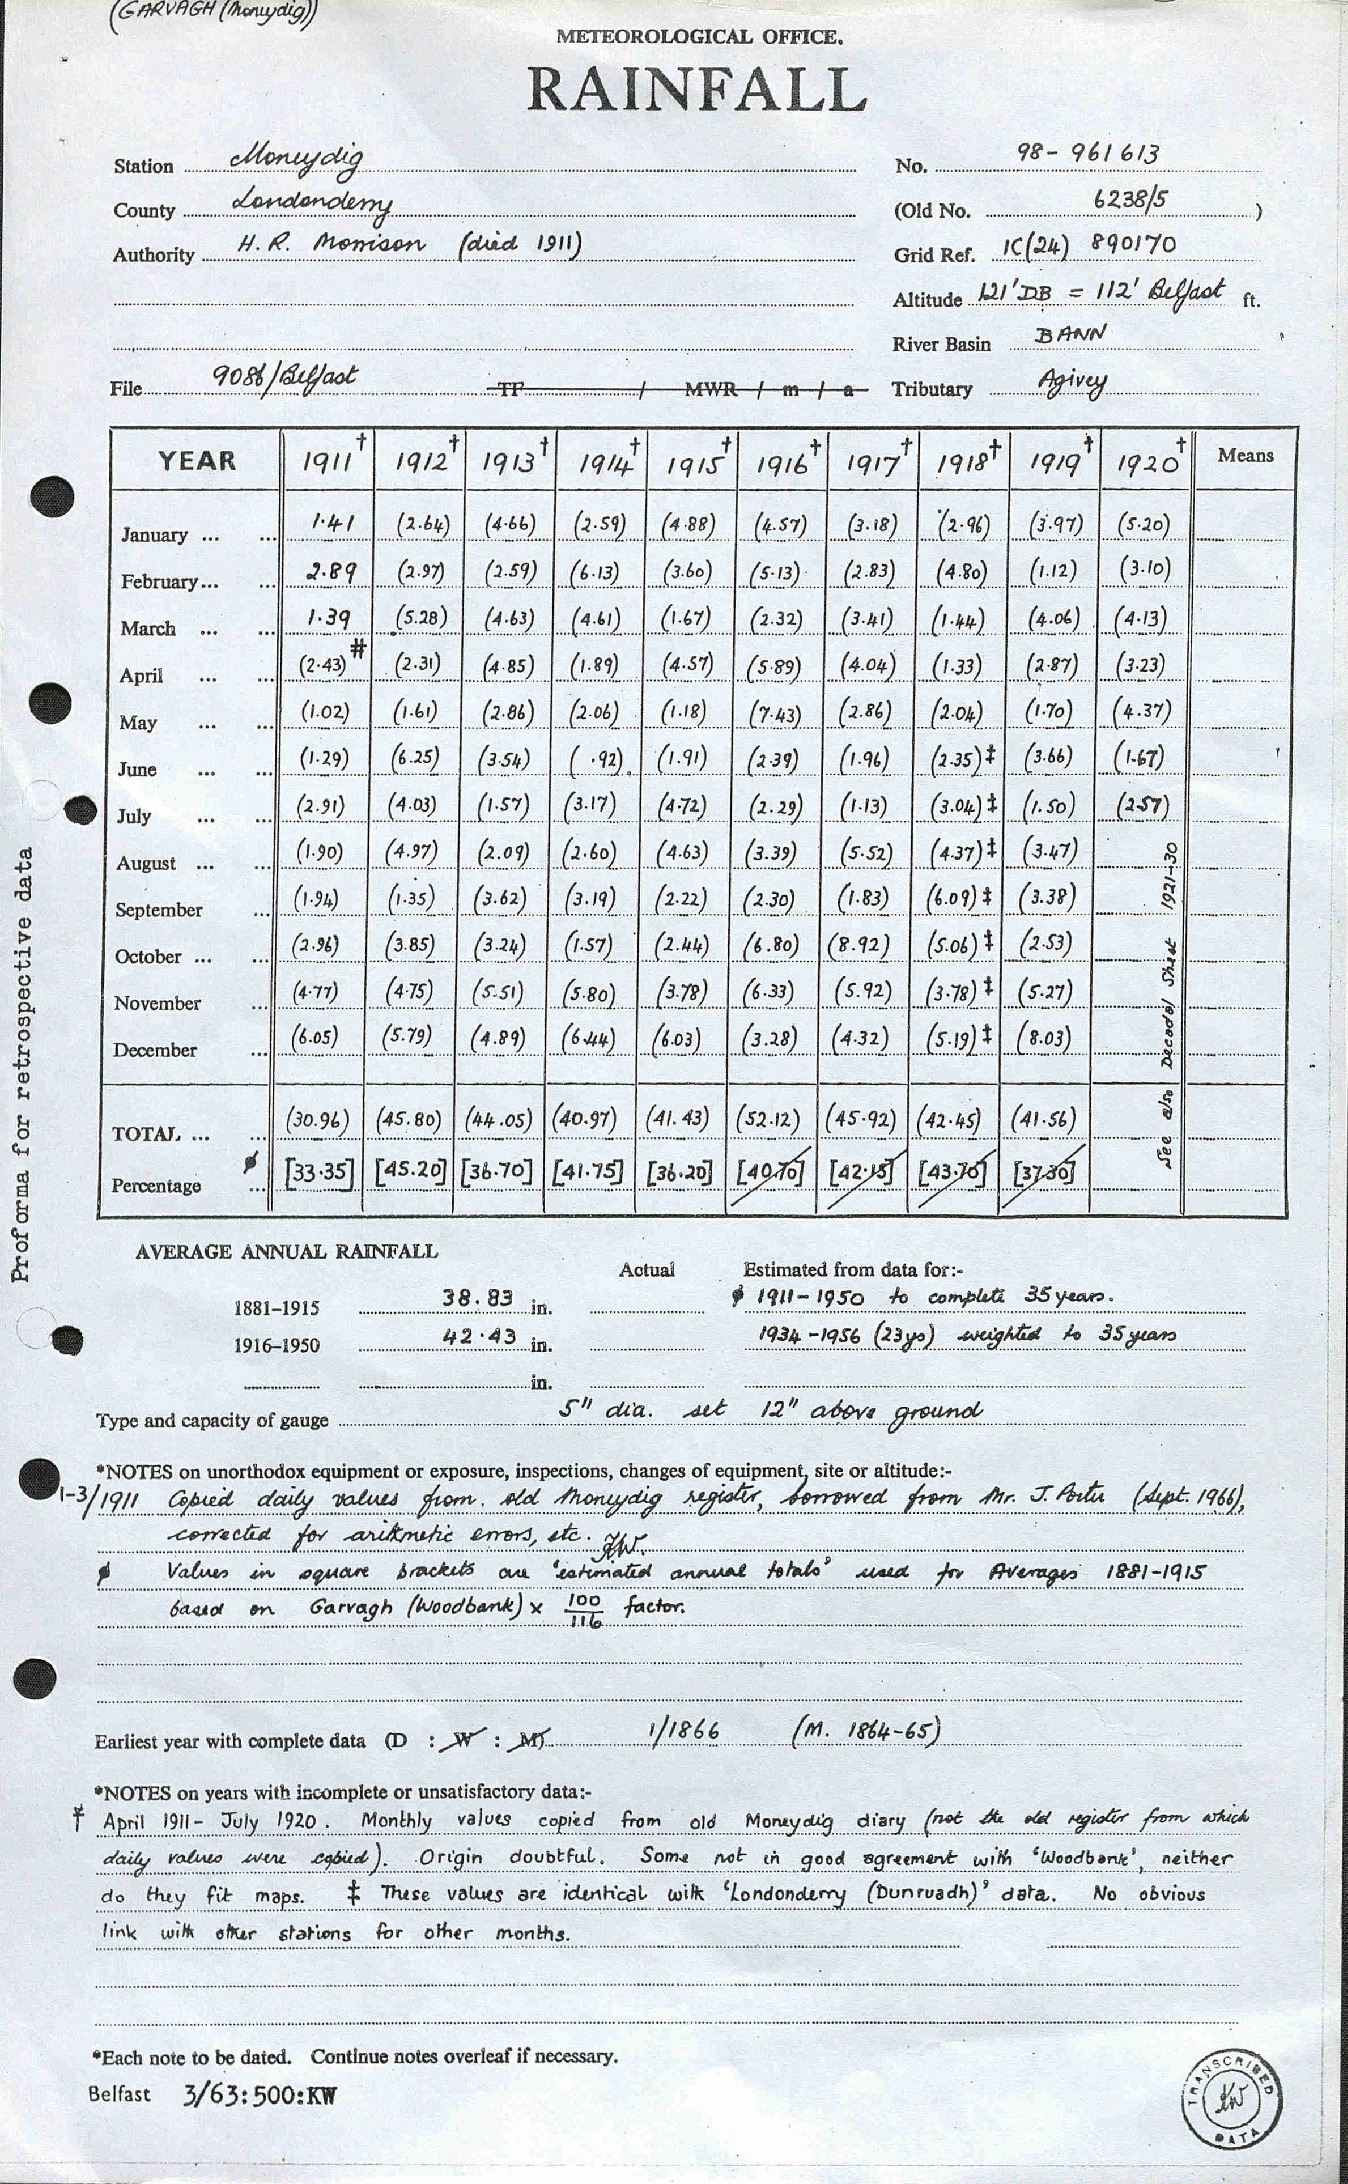 (GARVAGH (Moneydig))
METEOROLOGICAL OFFICE.
RAINFALL
Station Moneydig No. 98- 961613
County Londonderry (Old No. 6238/5 )
Authority H. R. Morrison (died 1911) Grid Ref. IC(24) 890170
Altitude 121'DB = 112' Belfast ft.
River Basin BANN
File 9086/Belfast TF / MWR / m / a Tributary Agivey
YEAR 1911† 1912† 1913† 1914† 1915† 1916† 1917† 1918† 1919† 1920† Means
January ... ... 1.41 (2.64) (4.66) (2.59) (4.88) (4.57) (3.18) (2.96) (3.97) (5.20)
February... ... 2.89 (2.97) (2.59) (6.13) (3.60) (5.13) (2.83) (4.80) (1.12) (3.10)
March ... ... 1.39 (5.28) (4.63) (4.61) (1.67) (2.32) (3.41) (1.44) (4.06) (4.13)
April ... ... (2.43)# (2.31) (4.85) (1.89) (4.57) (5.89) (4.04) (1.33) (2.87) (3.23)
May ... ... (1.02) (1.61) (2.86) (2.06) (1.18) (7.43) (2.86) (2.04) (1.70) (4.37)
June ... ... (1.29) (6.25) (3.54) ( .92) (1.91) (2.39) (1.96) (2.35)‡ (3.66) (1.67)
July ... ... (2.91) (4.03) (1.57) (3.17) (4.72) (2.29) (1.13) (3.04)‡ (1.50) (2.57)
August ... ... (1.90) (4.97) (2.09) (2.60) (4.63) (3.39) (5.52) (4.37)‡ (3.47)
September ... (1.94) (1.35) (3.62) (3.19) (2.22) (2.30) (1.83) (6.09)‡ (3.38)
October ... ... (2.96) (3.85) (3.24) (1.57) (2.44) (6.80) (8.92) (5.06)‡ (2.53)
November ... (4.77) (4.75) (5.51) (5.80) (3.78) (6.33) (5.92) (3.78)‡ (5.27)
December ... (6.05) (5.79) (4.89) (6.44) (6.03) (3.28) (4.32) (5.19)‡ (8.03)
See also Decadal Sheet 1921-30
TOTAL ... ... (30.96) (45.80) (44.05) (40.97) (41.43) (52.12) (45.92) (42.45) (41.56)
Percentage ϕ ... [33.35] [45.20] [36.70] [41.75] [36.20] [40.70] [42.15] [43.70] [37.30]
Proforma for retrospective data
AVERAGE ANNUAL RAINFALL
Actual Estimated from data for:-
1881-1915 38.83 in. ϕ 1911-1950 to complete 35 years.
1916-1950 42.43 in. 1934-1956 (23ys) weighted to 35 years
in.
Type and capacity of gauge 5" dia. set 12" above ground
*NOTES on unorthodox equipment or exposure, inspections, changes of equipment, site or altitude:-
1-3/1911 Copied daily values from old Moneydig register, borrowed from Mr. J. Porter (Sept. 1966),
corrected for arithmetic errors, etc. KW.
ϕ Values in square brackets are 'estimated annual totals' used for Averages 1881-1915
based on Garvagh (Woodbank) x 100/116 factor.
Earliest year with complete data (D : W : M) 1/1866 (M. 1864-65)
*NOTES on years with incomplete or unsatisfactory data:-
† April 1911- July 1920. Monthly values copied from old Moneydig diary (not the old register from which
daily values were copied). Origin doubtful. Some not in good agreement with 'Woodbank', neither
do they fit maps. ‡ These values are identical with 'Londonderry (Dunruadh)' data. No obvious
link with other stations for other months.
*Each note to be dated. Continue notes overleaf if necessary.
Belfast 3/63:500:KW
TRANSCRIBED
KW
DATA